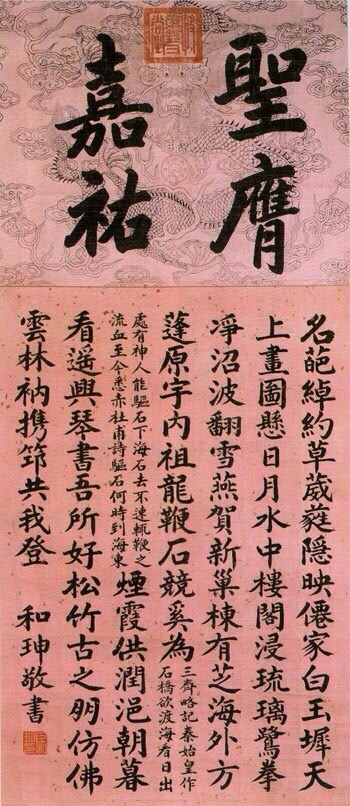 聖膺
嘉祐
名葩綽約草葳蕤隱映僊家白玉墀天
上畫圖懸日月水中樓閣浸琉璃鷺拳
淨沼波翻雪燕賀新巢棟有芝海外方
蓬原宇内祖龍鞭石競奚為
三齊略記秦始皇作
石橋欲渡海看日出
處有神人能驅石下海石去不速輒鞭之
流血至今悉赤杜甫詩驅石何時到海東
煙霞供潤浥朝暮
看遥興琴書吾所好松竹古之朋仿佛
雲林衲携筇共我登
和珅敬書